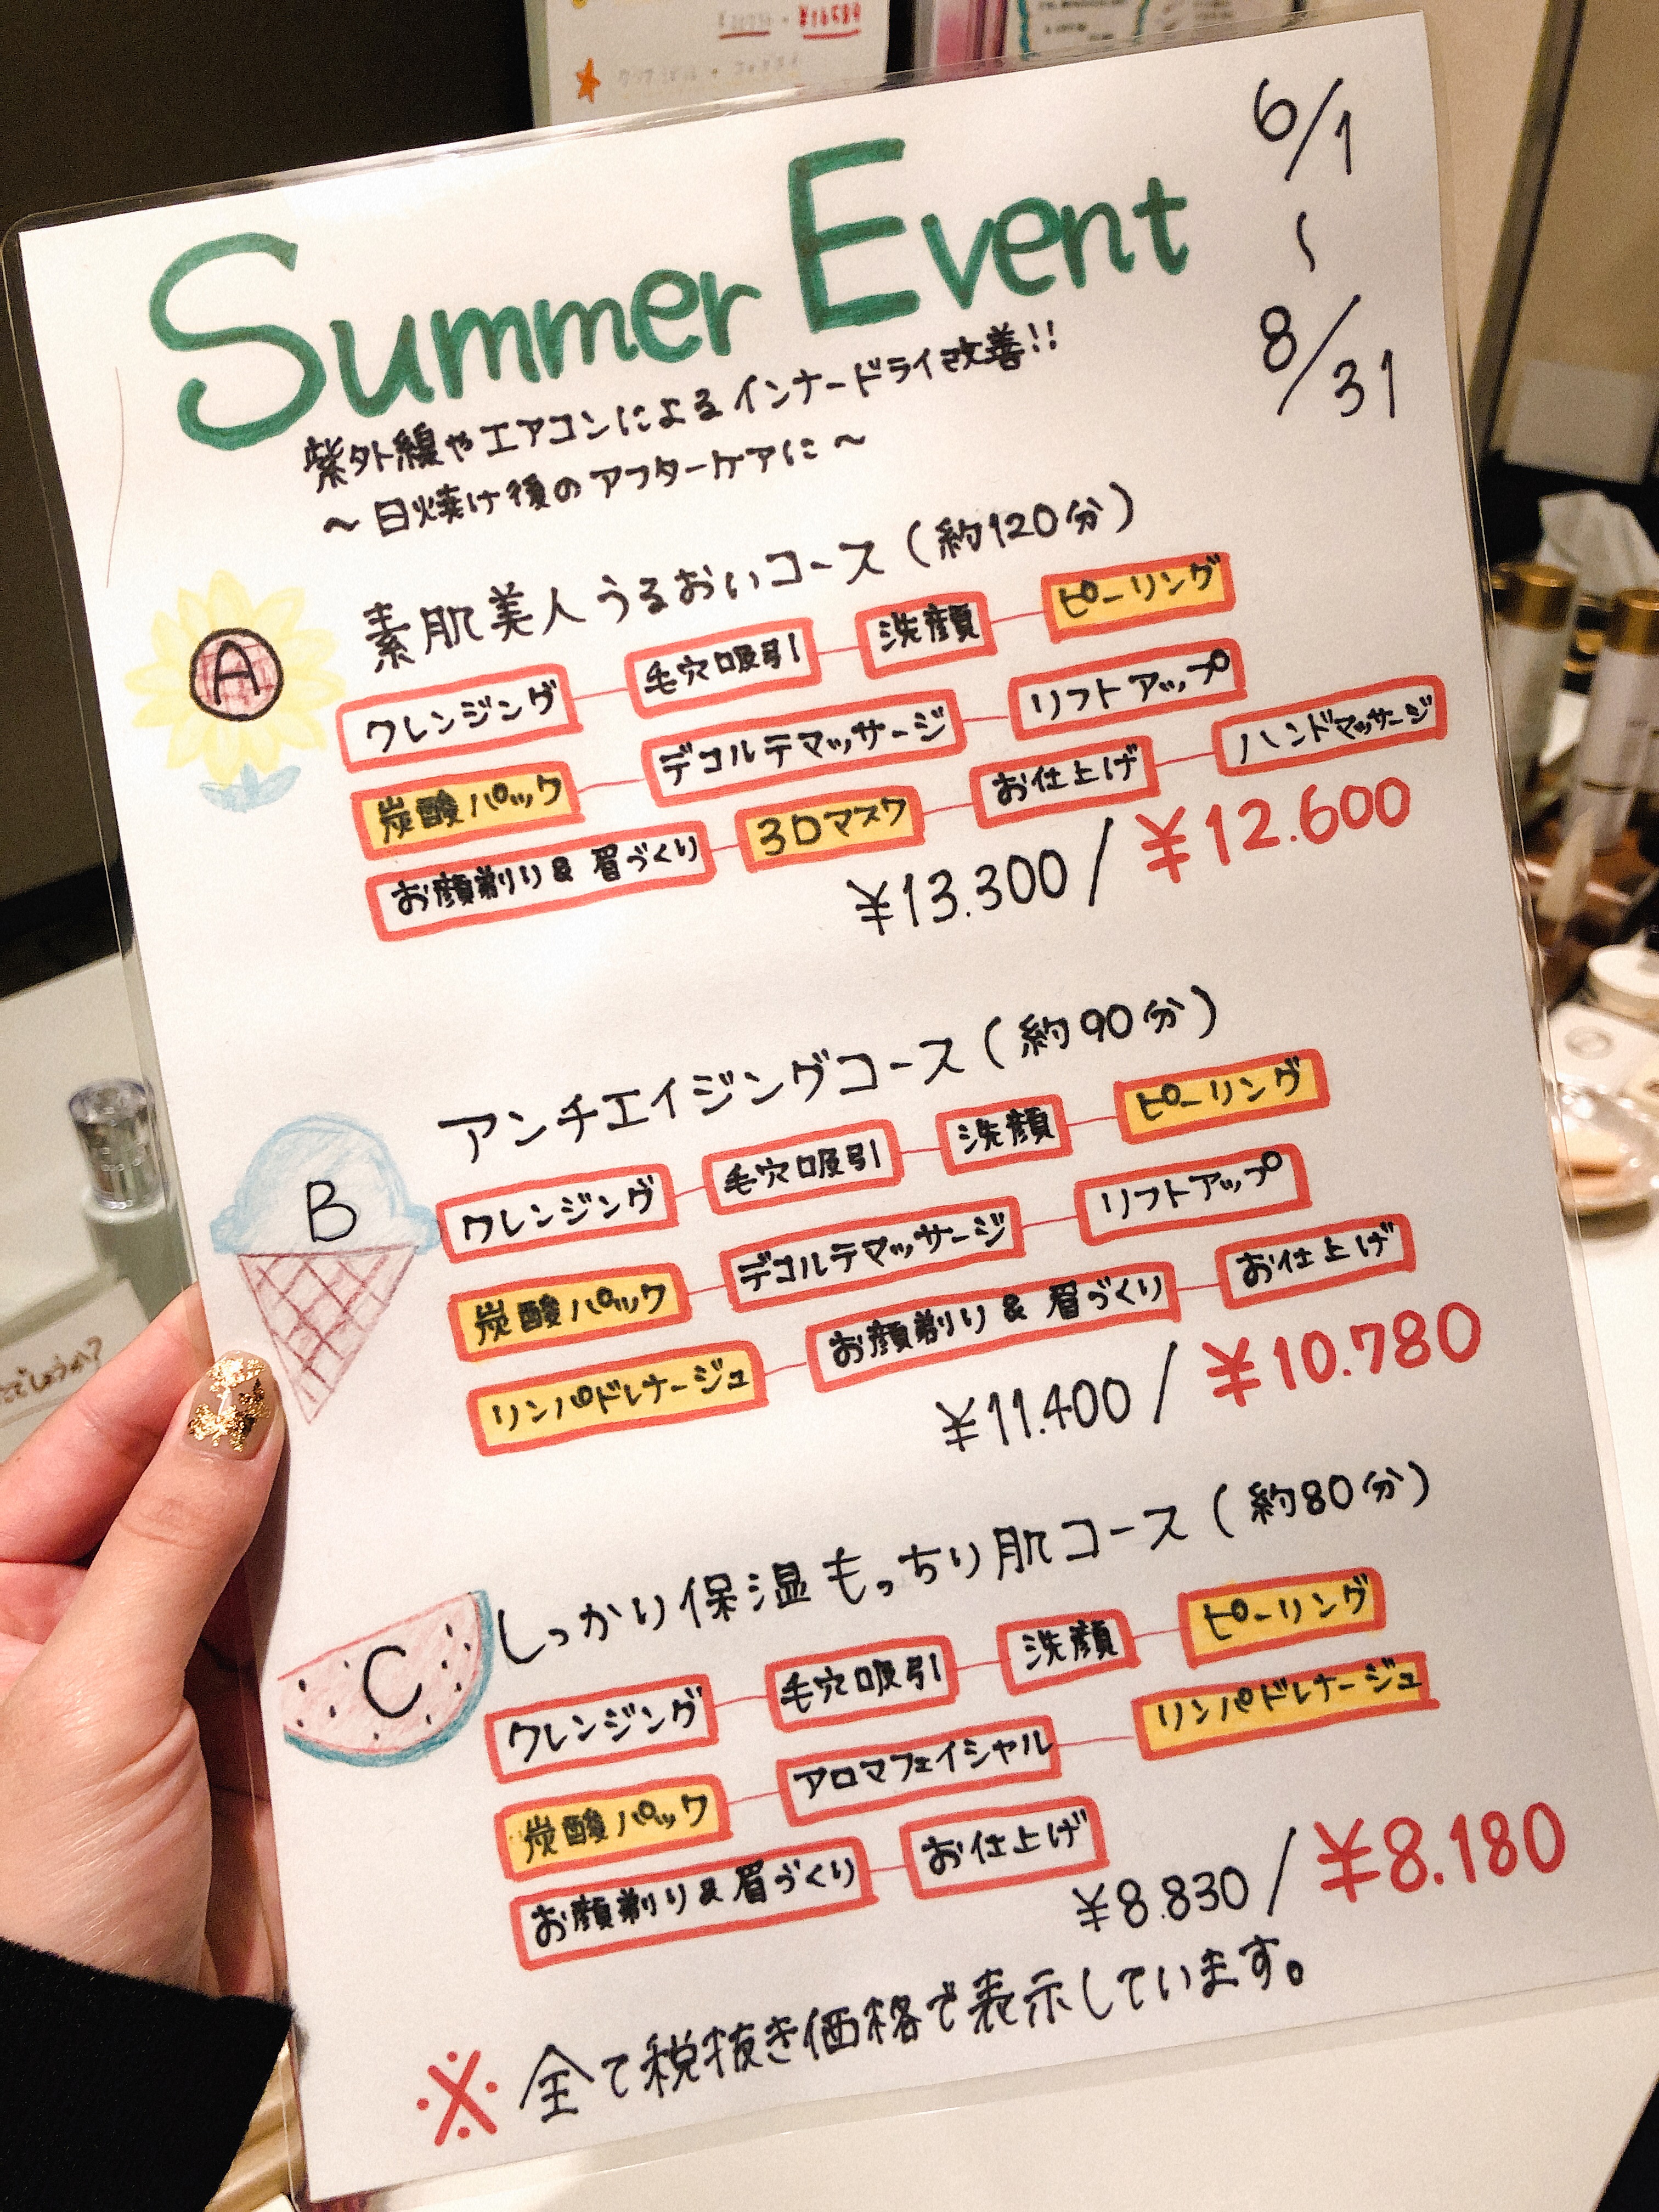 Summer Event
6/1
〜
8/31
紫外線やエアコンによるインナードライ改善!!
〜日焼け後のアフターケアに〜
A
素肌美人うるおいコース(約120分)
クレンジング 毛穴吸引 洗顔 ピーリング
炭酸パック デコルテマッサージ リフトアップ
お顔剃り&眉づくり 3Dマスク お仕上げ ハンドマッサージ
¥13.300/¥12.600
B
アンチエイジングコース(約90分)
クレンジング 毛穴吸引 洗顔 ピーリング
炭酸パック デコルテマッサージ リフトアップ
リンパドレナージュ お顔剃り&眉づくり お仕上げ
¥11.400/¥10.780
C
しっかり保温もっちり肌コース(約80分)
クレンジング 毛穴吸引 洗顔 ピーリング
炭酸パック アロマフェイシャル リンパドレナージュ
お顔剃り&眉づくり お仕上げ
¥8.830/¥8.180
※全て税抜き価格で表示しています。